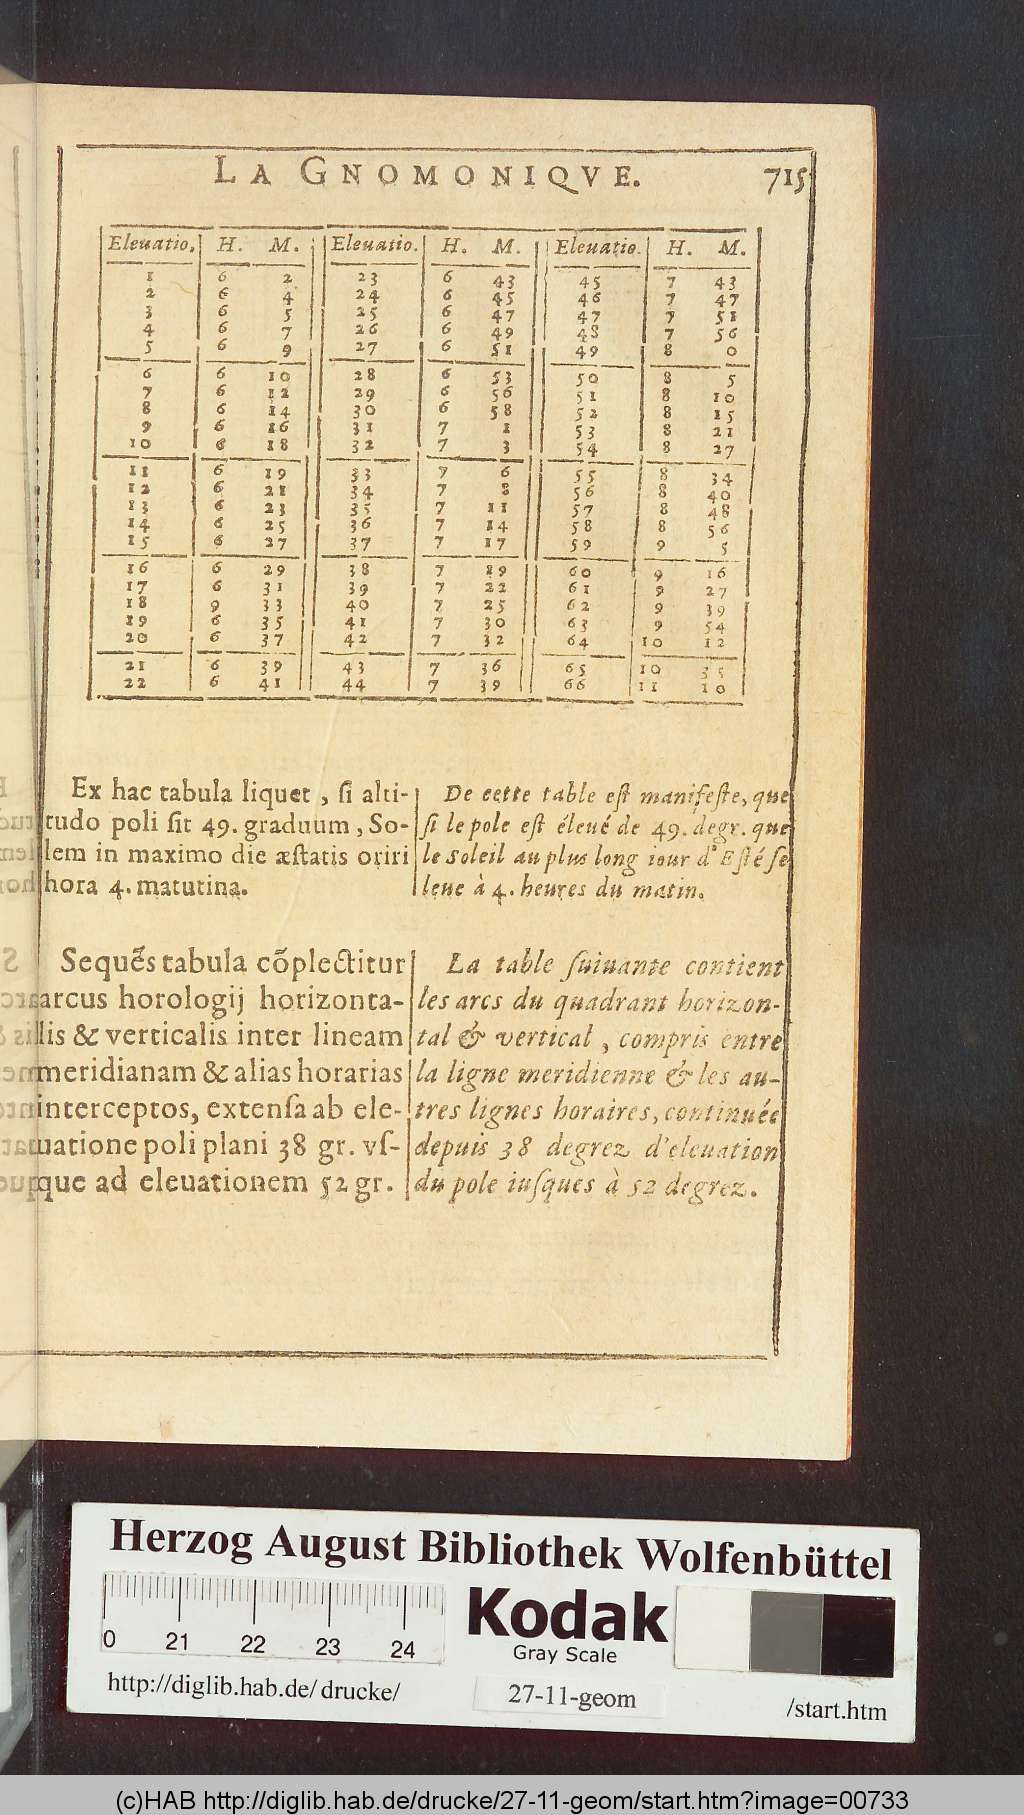 LA GNOMONIQVE. 715
Eleuatio. H. M. Eleuatio. H. M. Eleuatio. H. M.
1 6 2 23 6 43 45 7 43
2 6 4 24 6 45 46 7 47
3 6 5 25 6 47 47 7 51
4 6 7 26 6 49 48 7 56
5 6 9 27 6 51 49 8 0
6 6 10 28 6 53 50 8 5
7 6 12 29 6 56 51 8 10
8 6 14 30 6 58 52 8 15
9 6 16 31 7 1 53 8 21
10 6 18 32 7 3 54 8 27
11 6 19 33 7 6 55 8 34
12 6 21 34 7 8 56 8 40
13 6 23 35 7 11 57 8 48
14 6 25 36 7 14 58 8 56
15 6 27 37 7 17 59 9 5
16 6 29 38 7 19 60 9 16
17 6 31 39 7 22 61 9 27
18 9 33 40 7 25 62 9 39
19 6 35 41 7 30 63 9 54
20 6 37 42 7 32 64 10 12
21 6 39 43 7 36 65 10 35
22 6 41 44 7 39 66 11 10
Ex hac tabula liquet, ſi alti-
tudo poli ſit 49. graduum, So-
lem in maximo die æſtatis oriri
hora 4. matutina.
De cette table eſt manifeſte, que
ſi le pole eſt éleué de 49. degr. que
le Soleil au plus long iour d'Eſté ſe
leue à 4. heures du matin.
Sequẽs tabula cõplectitur
arcus horologij horizonta-
lis & verticalis inter lineam
meridianam & alias horarias
interceptos, extenſa ab ele-
uatione poli plani 38 gr. vſ-
que ad eleuationem 52 gr.
La table ſuiuante contient
les arcs du quadrant horizon-
tal & vertical, compris entre
la ligne meridienne & les au-
tres lignes horaires, continuée
depuis 38 degrez d'eleuation
du pole iuſques à 52 degrez.
Herzog August Bibliothek Wolfenbüttel
0 21 22 23 24
Kodak
Gray Scale
http://diglib.hab.de/drucke/ 27-11-geom /start.htm
(c)HAB http://diglib.hab.de/drucke/27-11-geom/start.htm?image=00733